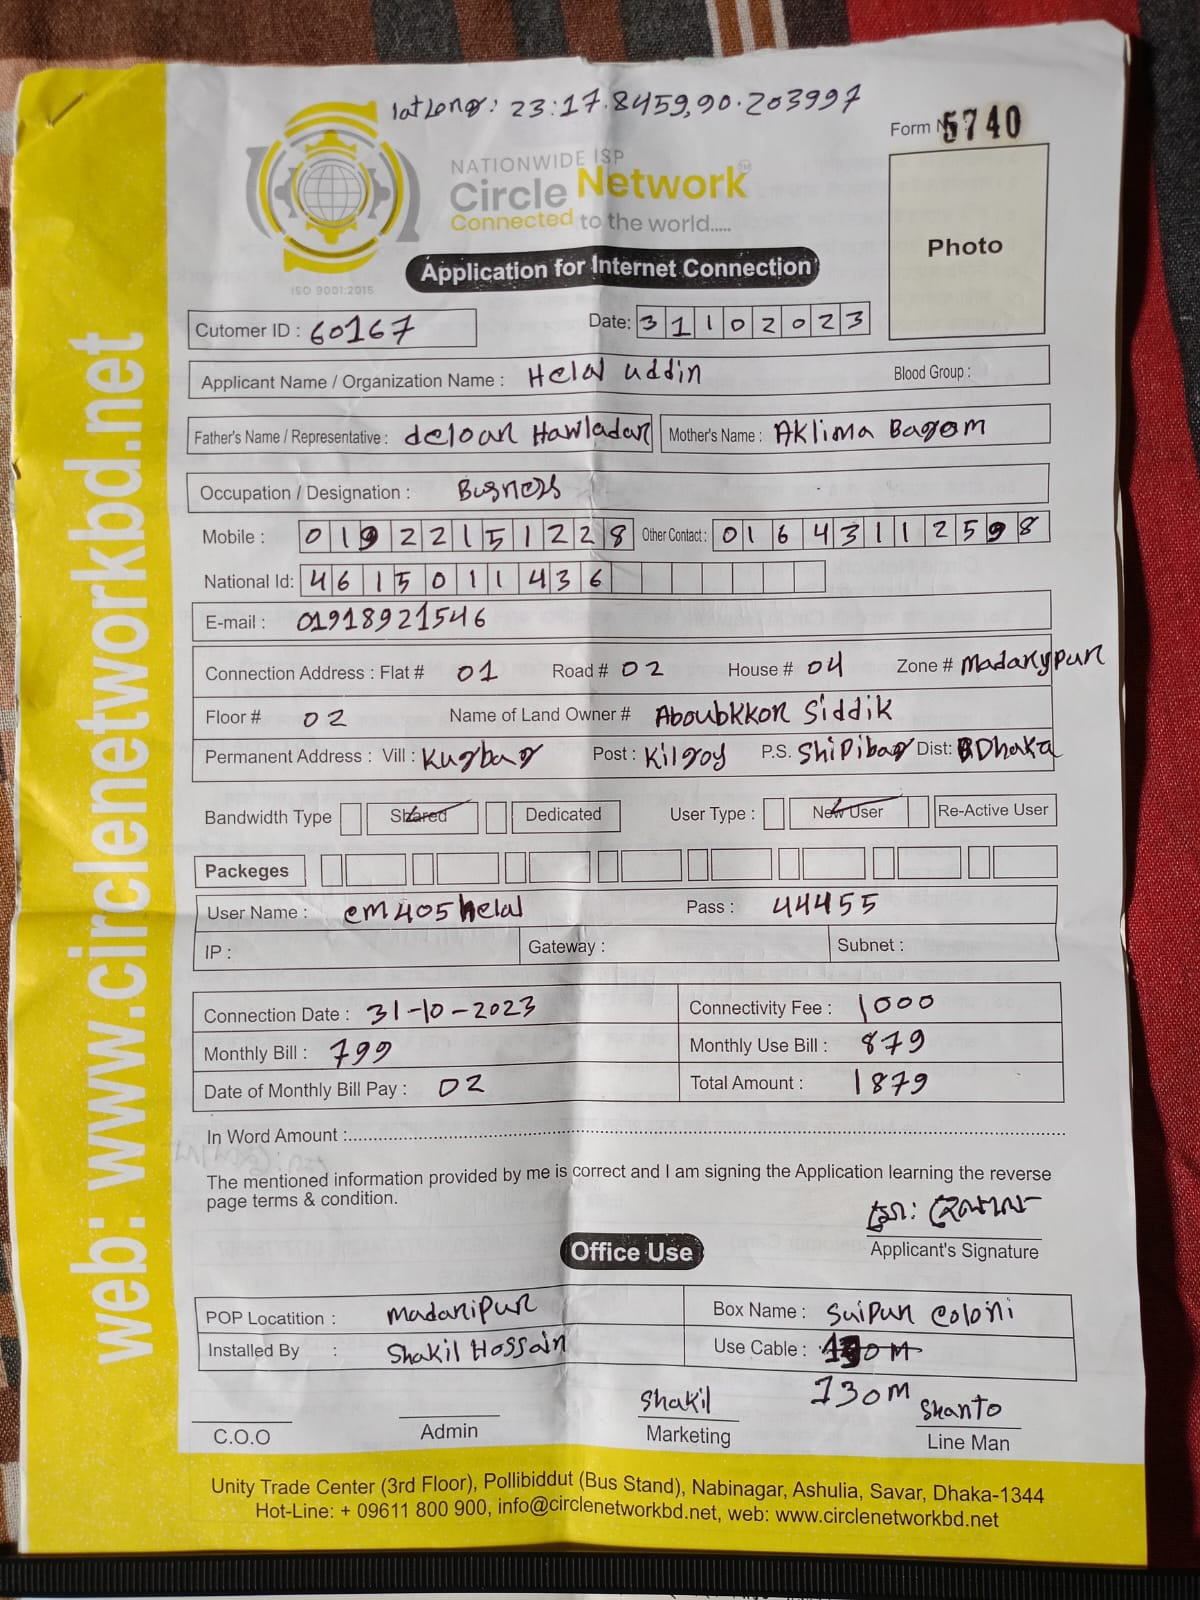 lat Long: 23:17.8459,90.203997
Form N 5740
NATIONWIDE ISP
Circle Network TM
Connected to the world.....
ISO 9001:2015
Application for Internet Connection
Photo
Cutomer ID : 60167 Date: 31102023
Applicant Name / Organization Name : Helal uddin Blood Group :
Father's Name / Representative : deloar Hawladar Mother's Name : Aklima Bagom
Occupation / Designation : Busness
Mobile : 01922151228 Other Contact : 01643112598
National Id: 4615011436
E-mail : 01918921546
Connection Address : Flat # 01 Road # 02 House # 04 Zone # Madarypur
Floor # 02 Name of Land Owner # Aboubkkor Siddik
Permanent Address : Vill : Kugbag Post : Kilgoy P.S. Shipibag Dist: Dhaka
Bandwidth Type Shared Dedicated User Type : New User Re-Active User
Packeges
User Name : em405helal Pass : 44455
IP : Gateway : Subnet :
Connection Date : 31-10-2023 Connectivity Fee : 1000
Monthly Bill : 799 Monthly Use Bill : 879
Date of Monthly Bill Pay : 02 Total Amount : 1879
In Word Amount :
The mentioned information provided by me is correct and I am signing the Application learning the reverse
page terms & condition.
মো: হেলাল
Applicant's Signature
Office Use
POP Locatition : Madaripur Box Name : Suipur Coloni
Installed By : Shakil Hossain Use Cable : 130M
130M
Shakil Shanto
C.O.O Admin Marketing Line Man
Unity Trade Center (3rd Floor), Pollibiddut (Bus Stand), Nabinagar, Ashulia, Savar, Dhaka-1344
Hot-Line: + 09611 800 900, info@circlenetworkbd.net, web: www.circlenetworkbd.net
web: www.circlenetworkbd.net